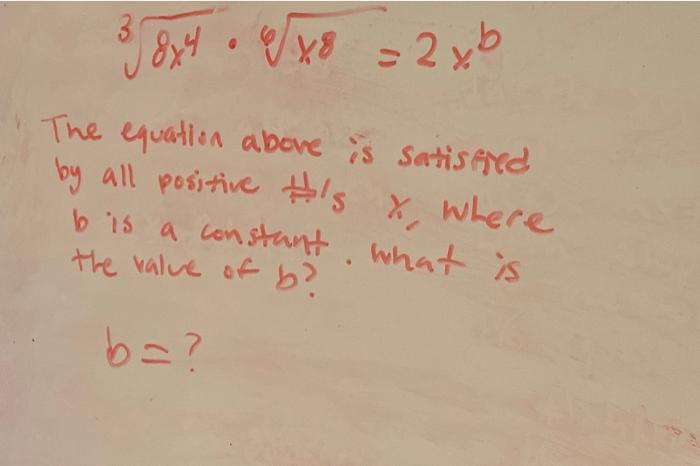 ∛8x⁴ · ∜x⁸ = 2x^b
The equation above is satisfied
by all positive #'s x, where
b is a constant. What is
the value of b?
b = ?